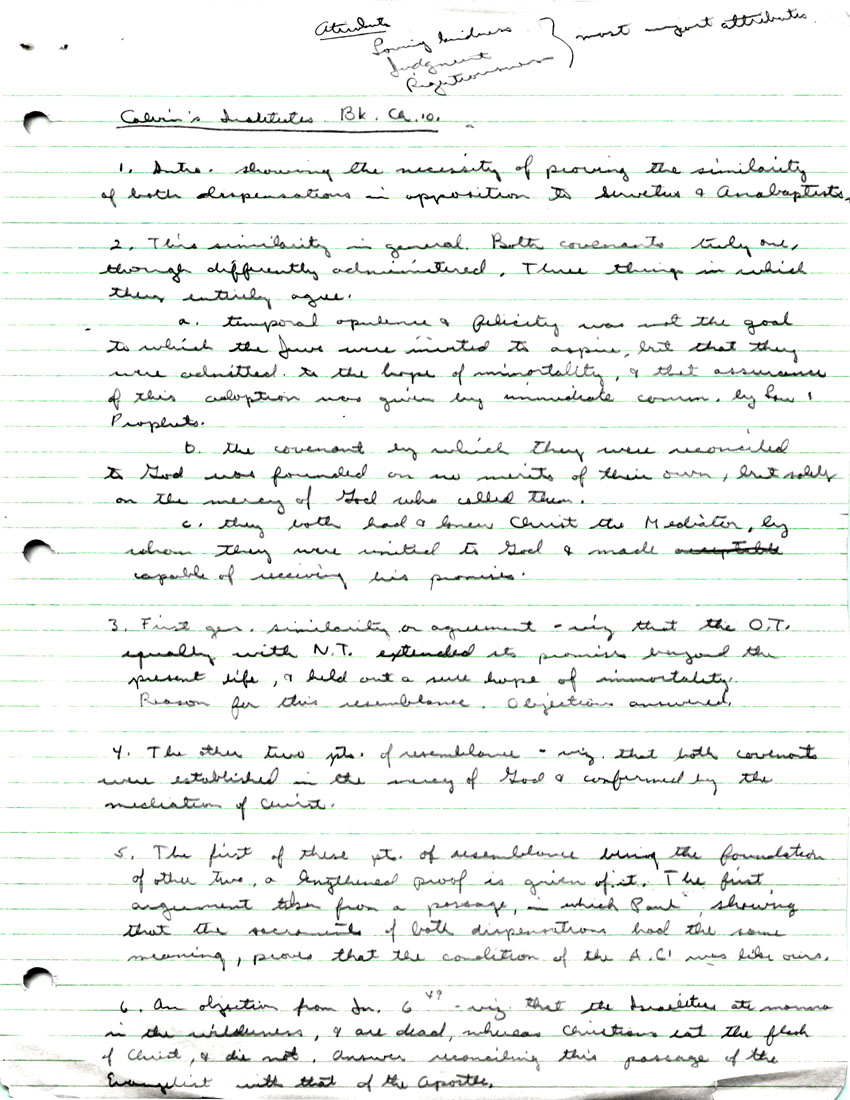 Attributes
Loving kindness
Judgment
Righteousness
} most import attributes.
Calvin's Institutes Bk. Ch. 10.
1. Intro. showing the necessity of proving the similarity
of both dispensations in opposition to Servetus & Anabaptists.
2. This similarity in general. Both covenants truly one,
though differently administered. Three things in which
they entirely agree.
a. temporal opulence & felicity was not the goal
to which the Jews were invited to aspire, but that they
were admitted to the hope of immortality, & that assurance
of this adoption was given by immediate comm. by Law &
Prophets.
b. the covenant by which they were reconciled
to God was founded on no merits of their own, but solely
on the mercy of God who called them.
c. they both had & knew Christ the Mediator, by
whom they were united to God & made acceptable
capable of receiving his promises.
3. First gen. similarity or agreement - viz that the O.T.
equally with N.T. extended its promises beyond the
present life, & held out a sure hope of immortality.
Reason for this resemblance. Objections answered.
4. The other two pts. of resemblance - viz. that both covenants
were established in the mercy of God & confirmed by the
mediation of Christ.
5. The first of these pts. of resemblance being the foundation
of other two, a lengthened proof is given of it. The first
argument taken from a passage, in which Paul, showing
that the sacraments of both dispensations had the same
meaning, proves that the condition of the A.C. was like ours.
6. An objection from Jn. 6 49 - viz. that the Israelites ate manna
in the wilderness, & are dead, whereas Christians eat the flesh
of Christ, & die not. Answer reconciling this passage of the
Evangelist with that of the Apostle.